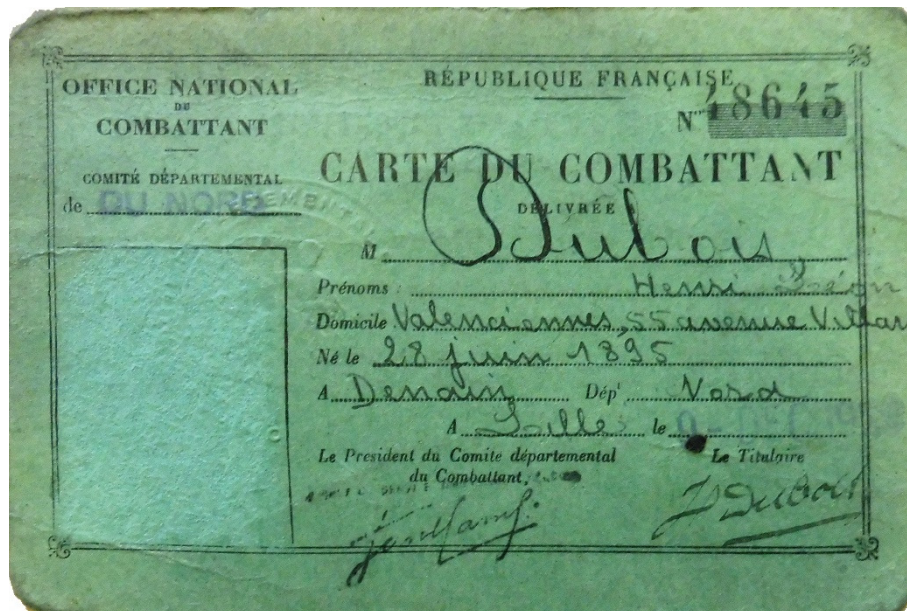 OFFICE NATIONAL
DU
COMBATTANT
COMITÉ DÉPARTEMENTAL
de DU NORD
RÉPUBLIQUE FRANÇAISE
N° 48645
CARTE DU COMBATTANT
DÉLIVRÉE
M Dubois
Prénoms : Henri Léon
Domicile Valenciennes, 55 avenue Villar
Né le 28 juin 1895
A Denain Dépt Nord
A Lille le
Le President du Comite départemental
du Combattant,
Le Titulaire
HDubois